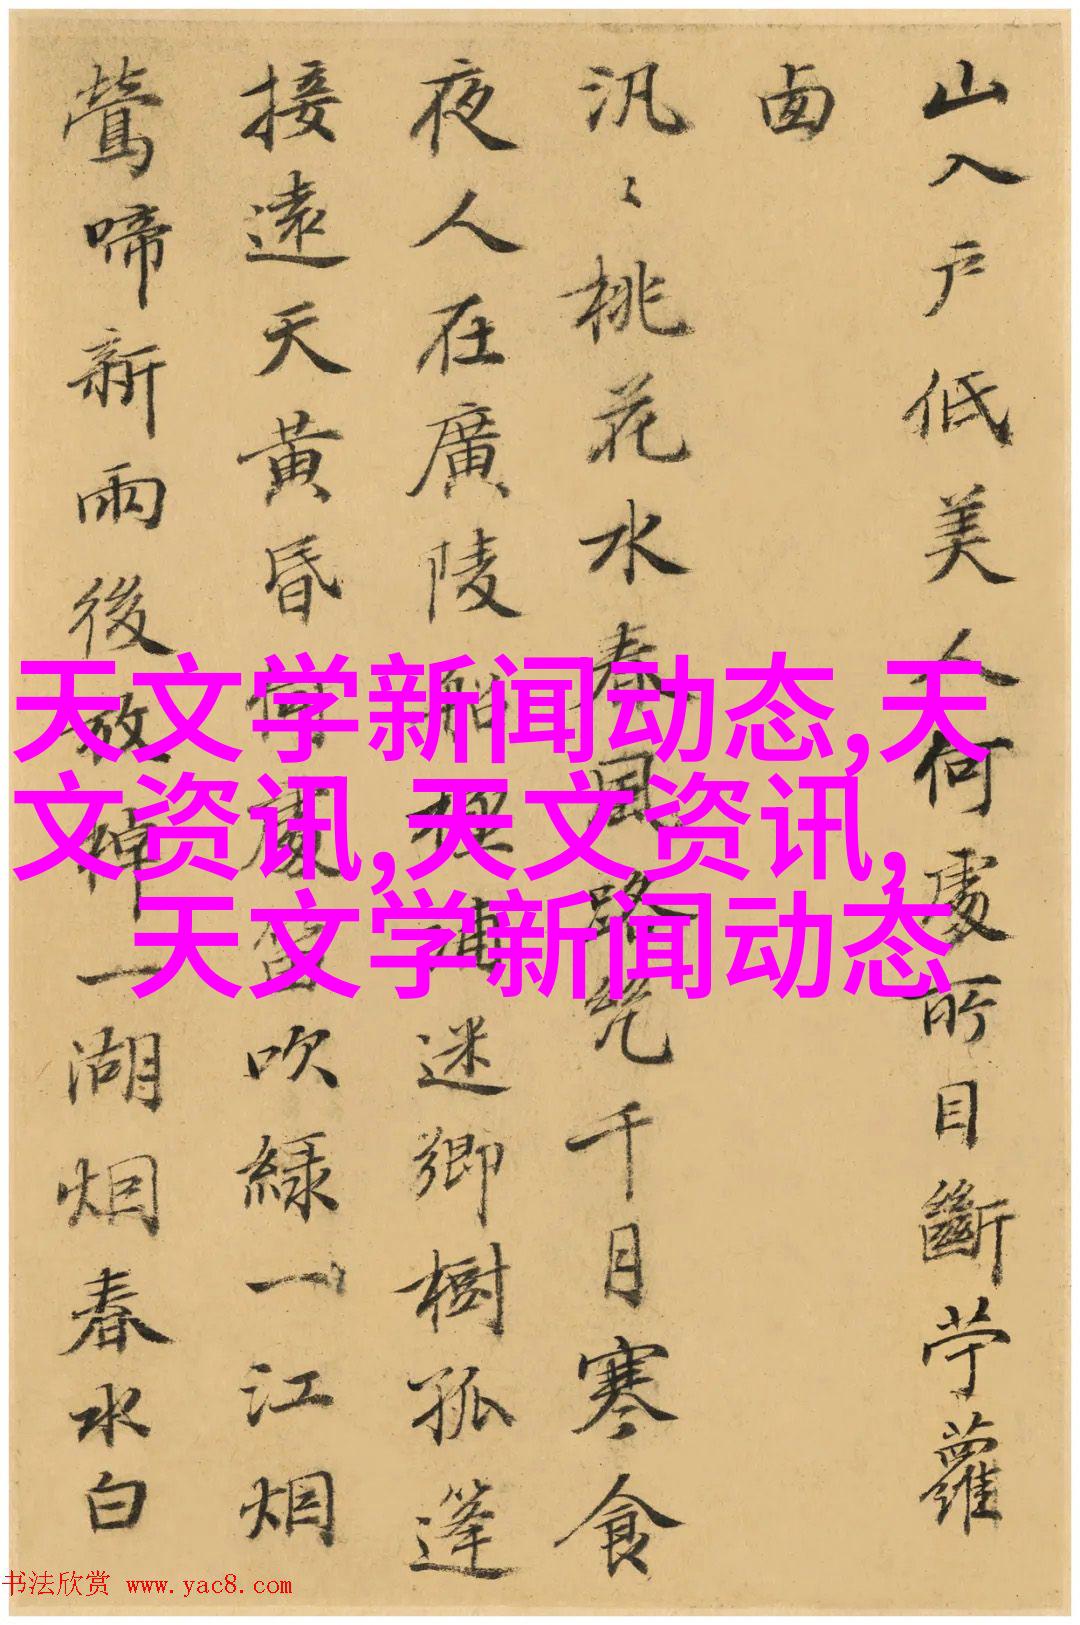 山入戶低美人何處所目斷苧蘿
西
汎々桃花水春風路千月寒食
夜人在廣陵船極浦迷鄉樹孤篷
接遠天黃昏何處笛吹綠一江烟
鶯啼新雨後放棹一湖烟春水白
天文学新闻动态,天
文资讯,天文资讯,
天文学新闻动态
书法欣赏 www.yac8.com